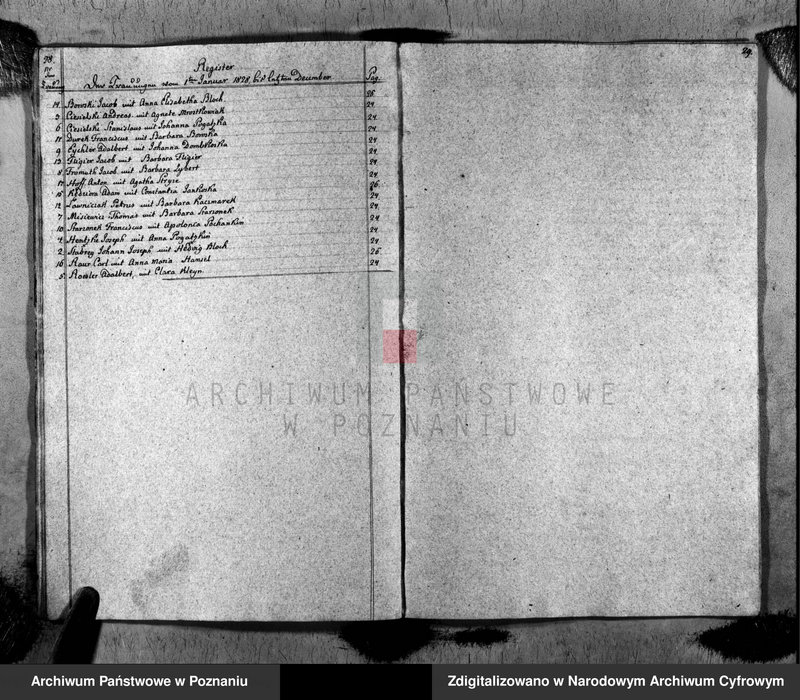 28.
29.
Register
der Trauungen vom 1ten Januar 1828 bis letzten December
Pag.
14 Bowski Jacob mit Anna Elisabetha Bloch 25
3 Ciesielski Andreas mit Agnete 24
6 Ciesielski Stanislaus mit Johanna 24
11 Durek Franciscus mit Barbara Bowska 24
9 Eychler Adalbert mit Johanna Dombrowska 24
13 Fligier Jacob mit Barbara Fligier 24
8 Fromuth Jacob mit Barbara Seybert 24
Hoff Anton mit Agatha 24
15 Adam mit Constantia Jankoska
12 Lawniczak Petrus mit Barbara Kaczmarek 24
7 Misiewicz Thomas mit Barbara 24
10 Franciscus mit Apolonia 24
4 Joseph mit Anna 24
2 Johann Joseph mit Hedwig Bloch 24
16 Carl mit Anna Maria Hansel 25
5 Roesler Adalbert, mit Clara Kleyn 24
ARCHIWUM PAŃSTWOWE
W POZNANIU
Archiwum Państwowe w Poznaniu
Zdigitalizowano w Narodowym Archiwum Cyfrowym